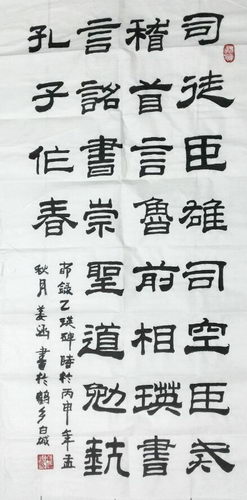 司徒臣雄司空臣戒
稽首言魯前相瑛書
言詔書崇聖道勉埶
孔子作春
節錄乙瑛碑時於丙申年孟
秋月姜涵書於鶴乡白城